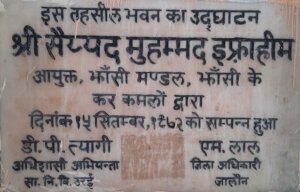 इस तहसील भवन का उद्घाटन
श्री सैय्यद मुहम्मद इफ्राहीम
आयुक्त, झाँसी मण्डल, झाँसी के
कर कमलों द्वारा
दिनांक १५ सितम्बर, १९७२ को सम्पन्न हुआ
डी. पी. त्यागी एम. लाल
अधिशासी अभियन्ता ज़िला अधिकारी
सा. नि. वि. उरई जालौन